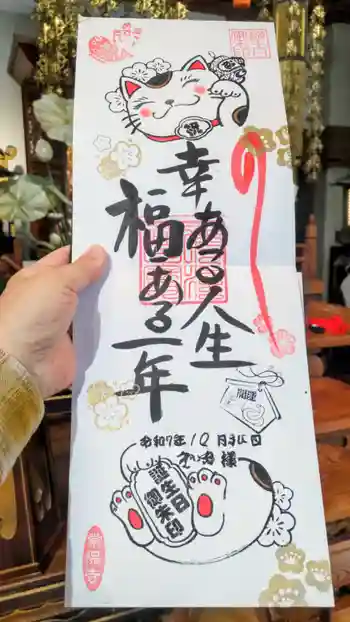 幸ある人生
福ある一年
開運
令和7年10月31日
様
誕生日
御朱印
常保寺